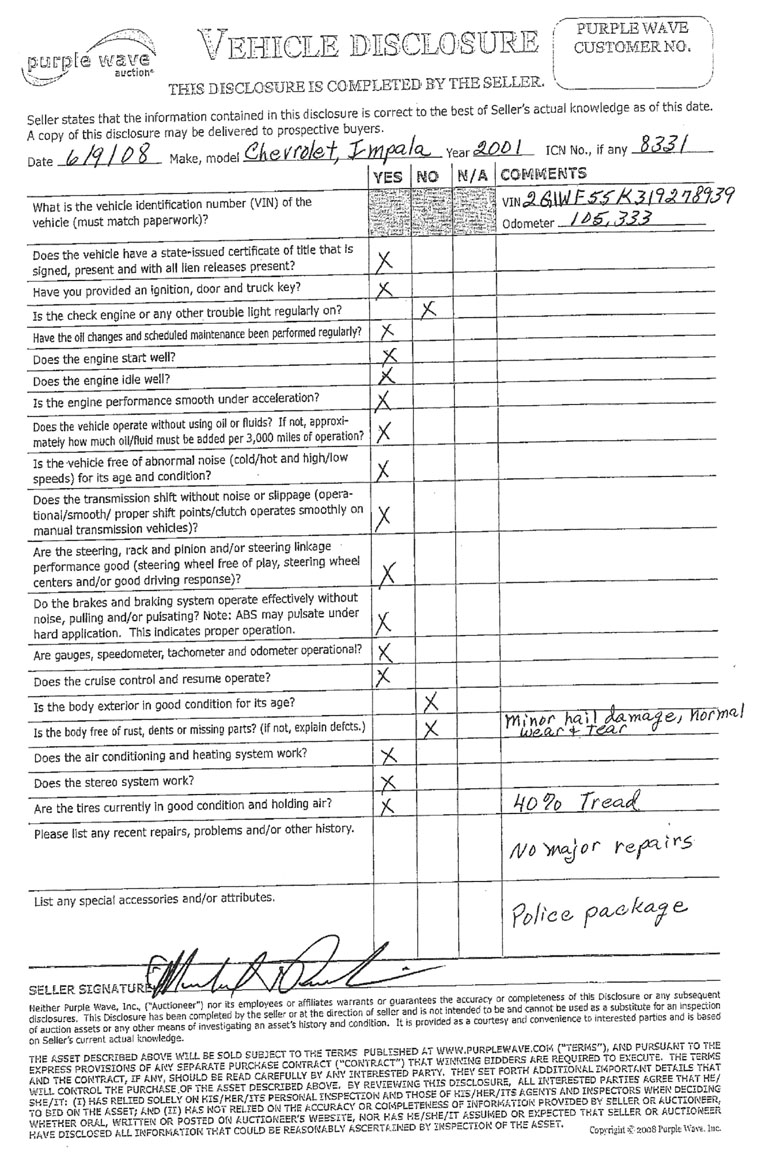 purple wave
auction®
VEHICLE DISCLOSURE
THIS DISCLOSURE IS COMPLETED BY THE SELLER.
PURPLE WAVE
CUSTOMER NO.
Seller states that the information contained in this disclosure is correct to the best of Seller's actual knowledge as of this date.
A copy of this disclosure may be delivered to prospective buyers.
Date 6/9/08 Make, model Chevrolet, Impala Year 2001 ICN No., if any 8331
YES NO N/A COMMENTS
What is the vehicle identification number (VIN) of the
vehicle (must match paperwork)?
VIN 2G1WF55K319278939
Odometer 105,333
Does the vehicle have a state-issued certificate of title that is
signed, present and with all lien releases present? X
Have you provided an ignition, door and truck key? X
Is the check engine or any other trouble light regularly on? X
Have the oil changes and scheduled maintenance been performed regularly? X
Does the engine start well? X
Does the engine idle well? X
Is the engine performance smooth under acceleration? X
Does the vehicle operate without using oil or fluids? If not, approxi-
mately how much oil/fluid must be added per 3,000 miles of operation? X
Is the vehicle free of abnormal noise (cold/hot and high/low
speeds) for its age and condition? X
Does the transmission shift without noise or slippage (opera-
tional/smooth/ proper shift points/clutch operates smoothly on
manual transmission vehicles)? X
Are the steering, rack and pinion and/or steering linkage
performance good (steering wheel free of play, steering wheel
centers and/or good driving response)? X
Do the brakes and braking system operate effectively without
noise, pulling and/or pulsating? Note: ABS may pulsate under
hard application. This indicates proper operation. X
Are gauges, speedometer, tachometer and odometer operational? X
Does the cruise control and resume operate? X
Is the body exterior in good condition for its age? X
Is the body free of rust, dents or missing parts? (If not, explain defcts.) X
Minor hail damage, Normal
wear + Tear
Does the air conditioning and heating system work? X
Does the stereo system work? X
Are the tires currently in good condition and holding air? X 40% Tread
Please list any recent repairs, problems and/or other history.
No major repairs
List any special accessories and/or attributes.
Police package
SELLER SIGNATURE
Neither Purple Wave, Inc., ("Auctioneer") nor its employees or affiliates warrants or guarantees the accuracy or completeness of this Disclosure or any subsequent
disclosures. This Disclosure has been completed by the seller or at the direction of seller and is not intended to be and cannot be used as a substitute for an inspection
of auction assets or any other means of investigating an asset's history and condition. It is provided as a courtesy and convenience to interested parties and is based
on Seller's current actual knowledge.
THE ASSET DESCRIBED ABOVE WILL BE SOLD SUBJECT TO THE TERMS PUBLISHED AT WWW.PURPLEWAVE.COM ("TERMS"), AND PURSUANT TO THE
EXPRESS PROVISIONS OF ANY SEPARATE PURCHASE CONTRACT ("CONTRACT") THAT WINNING BIDDERS ARE REQUIRED TO EXECUTE. THE TERMS
AND THE CONTRACT, IF ANY, SHOULD BE READ CAREFULLY BY ANY INTERESTED PARTY. THEY SET FORTH ADDITIONAL IMPORTANT DETAILS THAT
WILL CONTROL THE PURCHASE OF THE ASSET DESCRIBED ABOVE. BY REVIEWING THIS DISCLOSURE, ALL INTERESTED PARTIES AGREE THAT HE/
SHE/IT: (I) HAS RELIED SOLELY ON HIS/HER/ITS PERSONAL INSPECTION AND THOSE OF HIS/HER/ITS AGENTS AND INSPECTORS WHEN DECIDING
TO BID ON THE ASSET; AND (II) HAS NOT RELIED ON THE ACCURACY OR COMPLETENESS OF INFORMATION PROVIDED BY SELLER OR AUCTIONEER,
WHETHER ORAL, WRITTEN OR POSTED ON AUCTIONEER'S WEBSITE, NOR HAS HE/SHE/IT ASSUMED OR EXPECTED THAT SELLER OR AUCTIONEER
HAVE DISCLOSED ALL INFORMATION THAT COULD BE REASONABLY ASCERTAINED BY INSPECTION OF THE ASSET.
Copyright © 2008 Purple Wave, Inc.